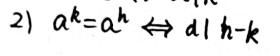 2) a^k=a^h ⇔ d| h-k